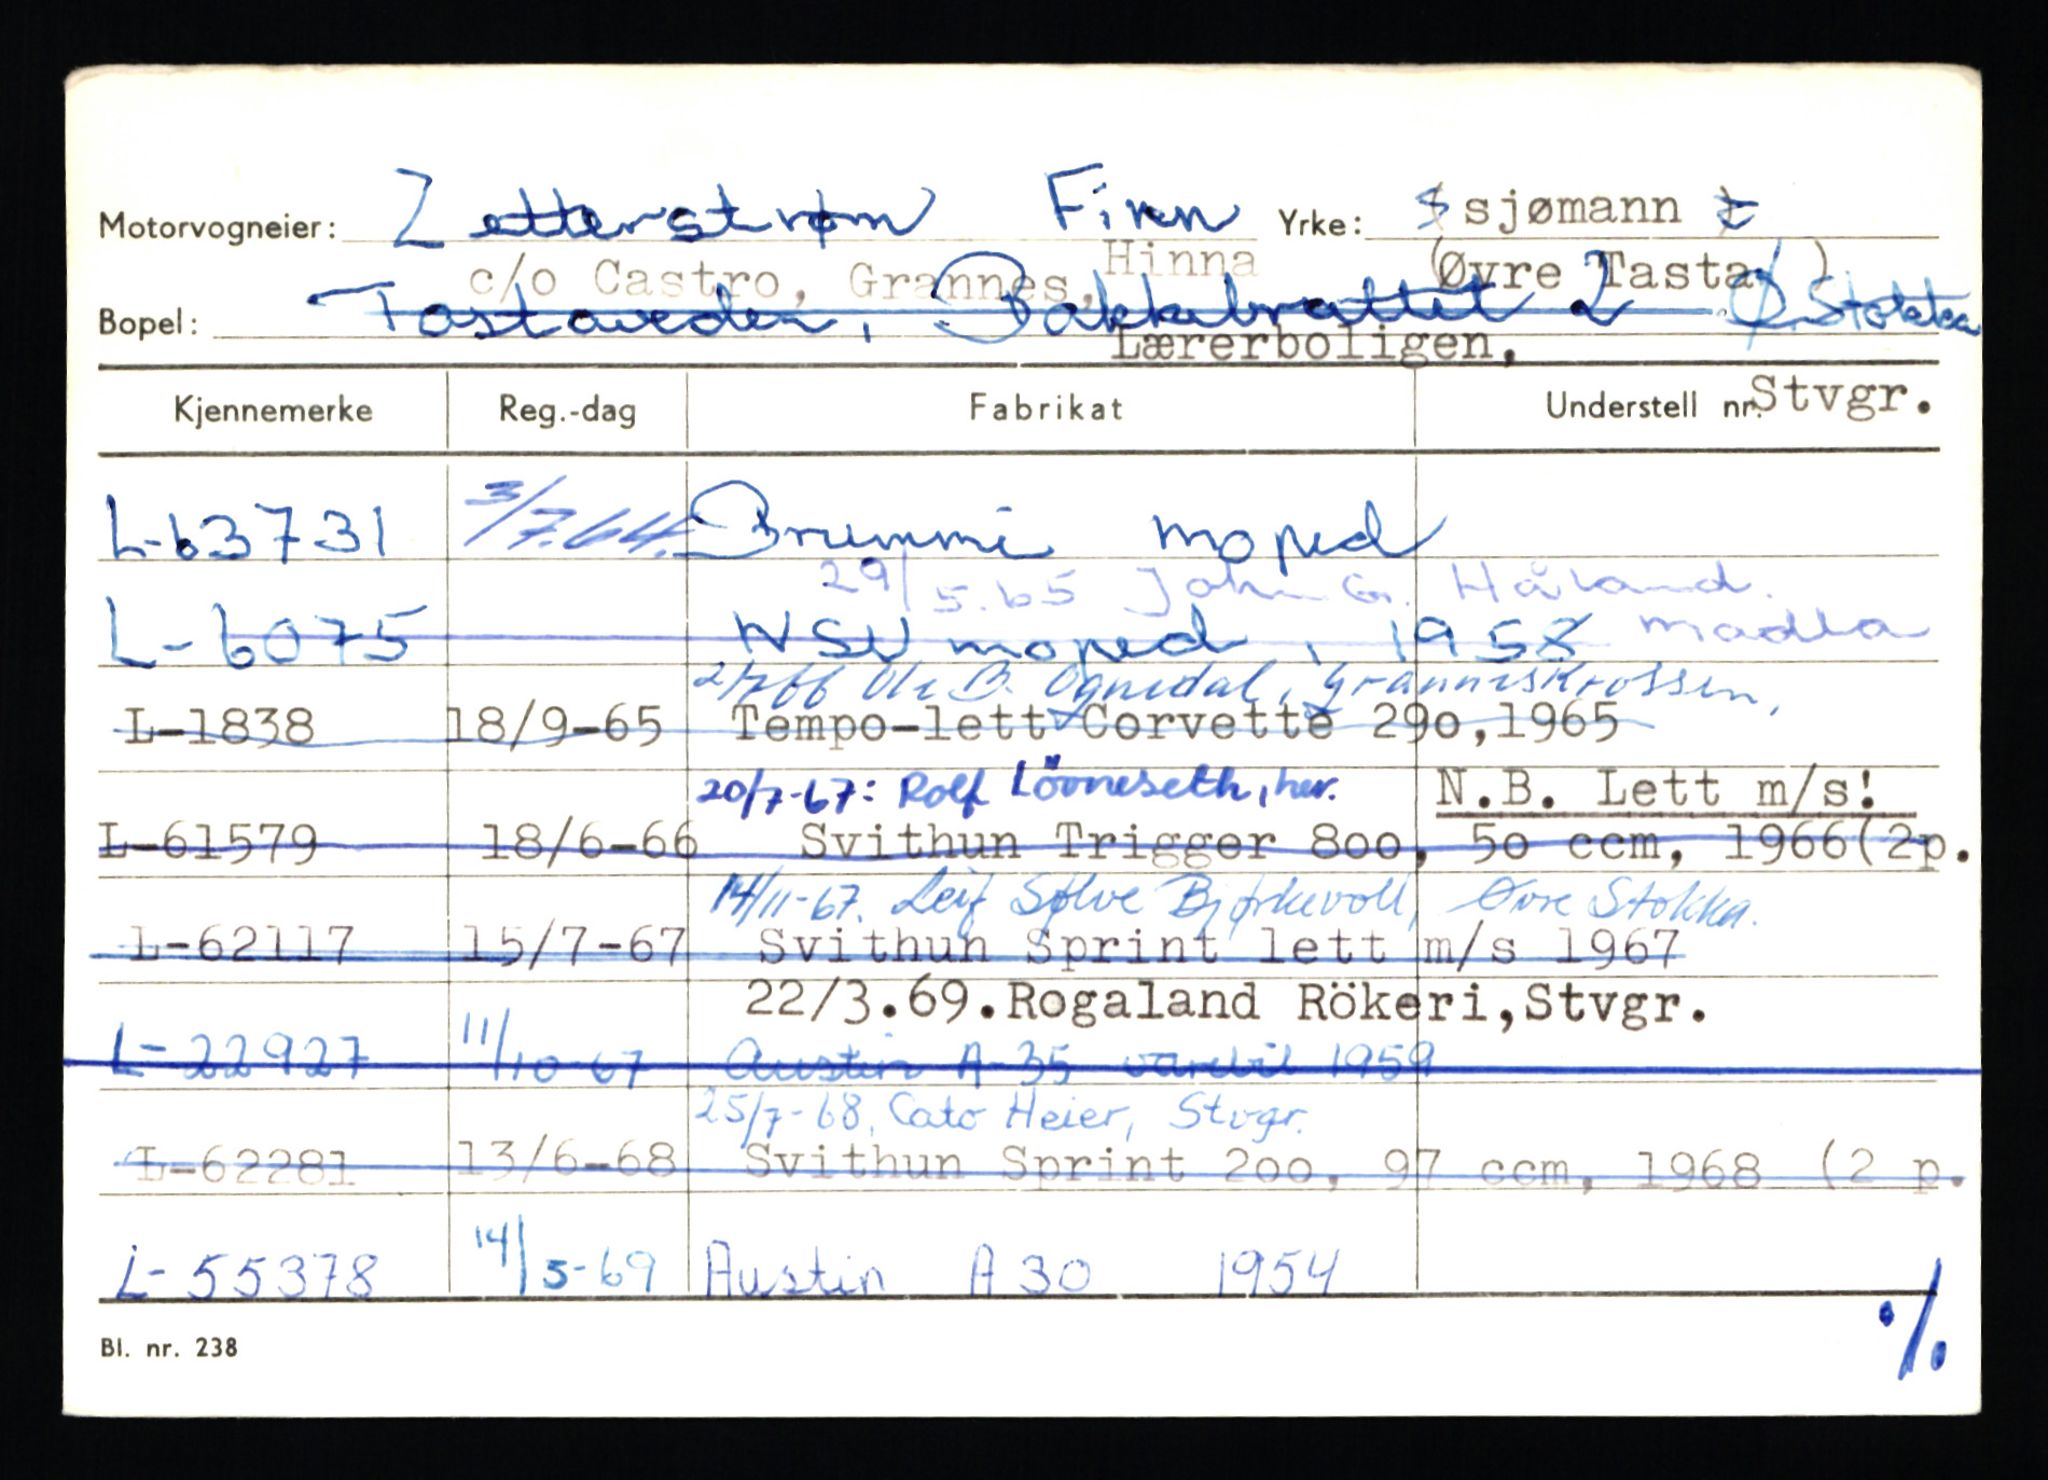 Motorvogneier: Zetterstrøm Finn Yrke: sjømann
c/o Castro, Grannes, Hinna (Øvre Tasta)
Bopel: Tastaveden, Bakkebrattet 2 Ø. Stokka
Lærerboligen,
Kjennemerke Reg.-dag Fabrikat Understell nr. Stvgr.
L-63731 3/7.64. Brummi moped
29/5.65 John G. Håland.
L-6075 NSU moped, 1958 Madla
2/7 66 Ole B. Ognedal, Granneskrossen,
L-1838 18/9-65 Tempo-lett Corvette 290,1965
20/7-67: Rolf Lövneseth, her. N.B. Lett m/s!
L-61579 18/6-66 Svithun Trigger 800, 50 ccm, 1966(2p.
14/11-67. Leif Sølve Bjørkevoll, Øvre Stokka.
L-62117 15/7-67 Svithun Sprint lett m/s 1967
22/3.69.Rogaland Rökeri,Stvgr.
L-22927 11/10-67 Austin A-35 varebil 1959
25/7-68, Cato Heier, Stvgr.
L-62281 13/6-68 Svithun Sprint 200, 97 ccm, 1968 (2 p.
L-55378 14/5-69 Austin A 30 1954
./.
Bl. nr. 238